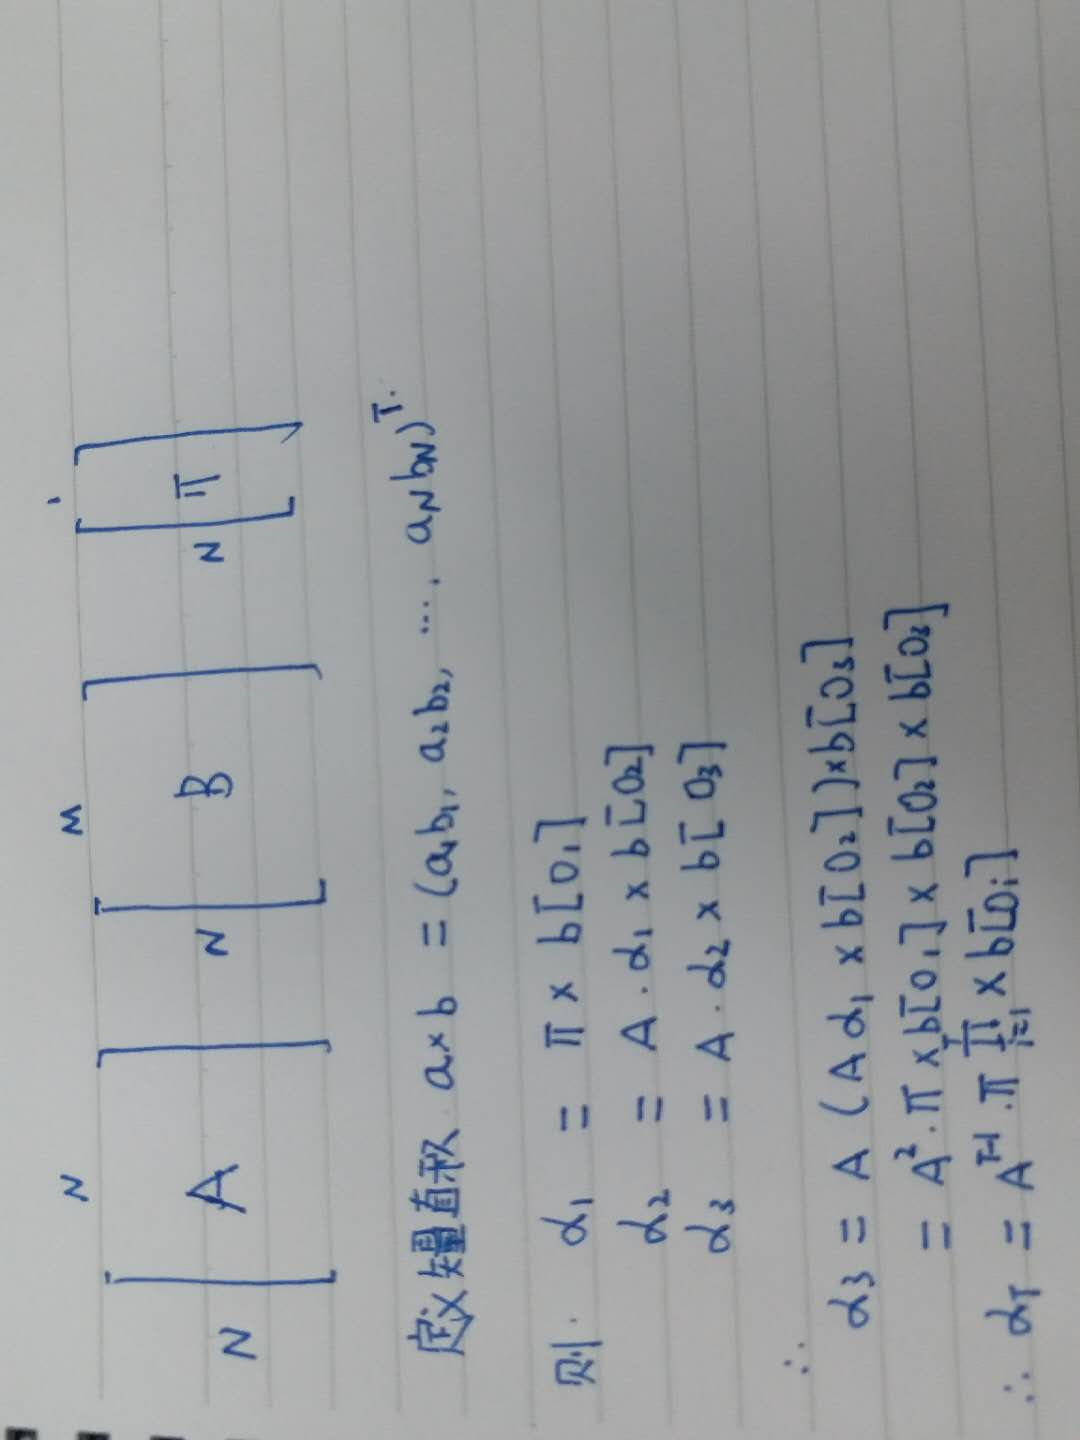 N N A N M B N 1 π
定义矢量直积 a×b = (a₁b₁, a₂b₂, ..., a_N b_N)^T.
则. α₁ = π × b[O₁]
α₂ = A·α₁ × b[O₂]
α₃ = A·α₂ × b[O₃]
∴ α₃ = A(Aα₁ × b[O₂])×b[O₃]
= A²·π × b[O₁] × b[O₂] × b[O₃]
∴ α_T = A^{T-1}·π ∏_{i=1}^{T} × b[O_i]